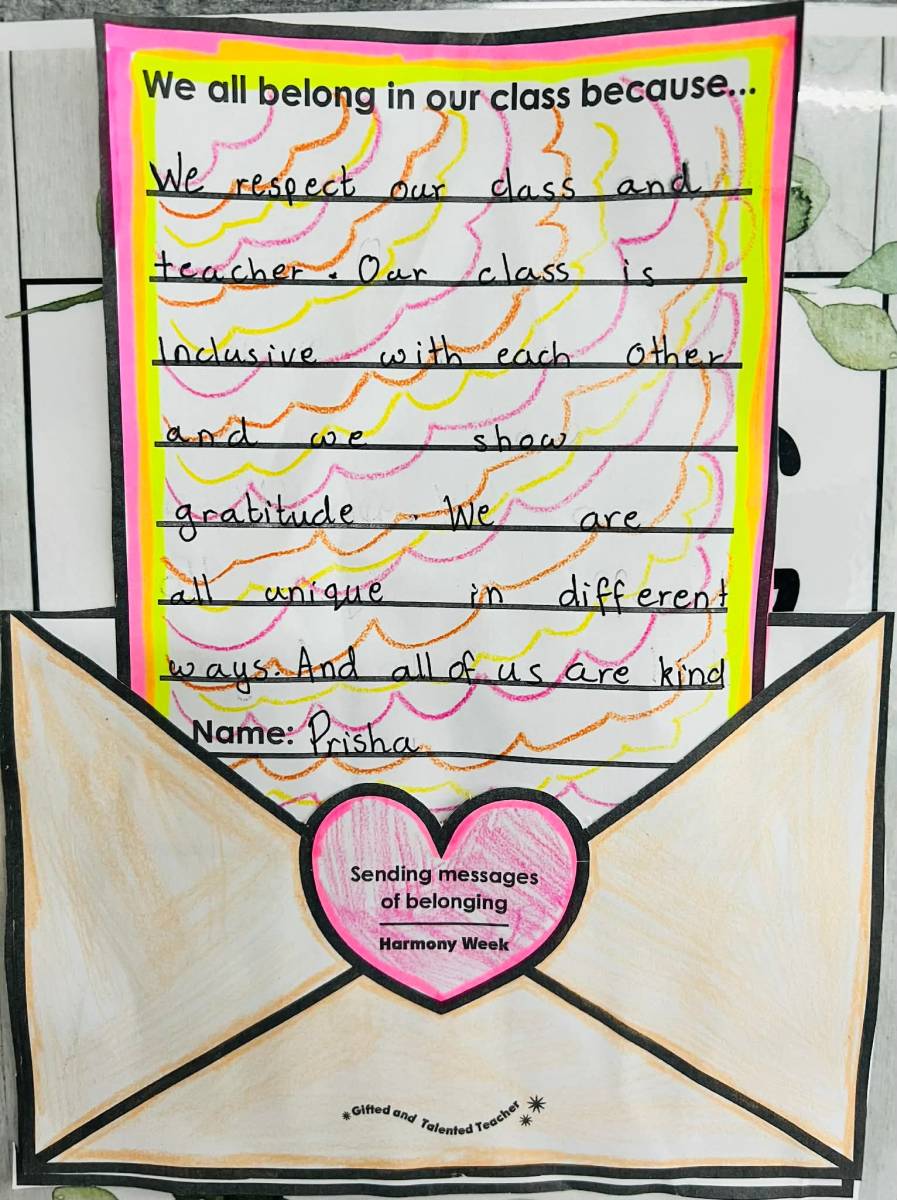 We all belong in our class because...
We respect our class and
teacher. Our class is
Inclusive with each other
and we show
gratitude. We are
all unique in different
ways. And all of us are kind
Name: Prisha
Sending messages
of belonging
Harmony Week
Gifted and Talented Teacher